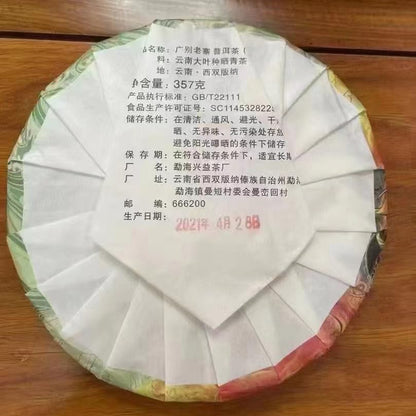 称：广别老寨 普洱茶（
料：云南大叶种晒青茶
地：云南·西双版纳
净含量：357克
产品执行标准：GB/T22111
食品生产许可证号：SC114532822
储存条件：在清洁、通风、避光、干
晒、无异味、无污染处存放
避免阳光曝晒的条件下储存
保 存 期：在符合储存条件下，适宜长期
厂 名：勐海兴益茶厂
厂 址：云南省西双版纳傣族自治州勐海
勐海镇曼短村委会曼峦回村
邮 编：666200
生产日期：
2021年 4月 28日